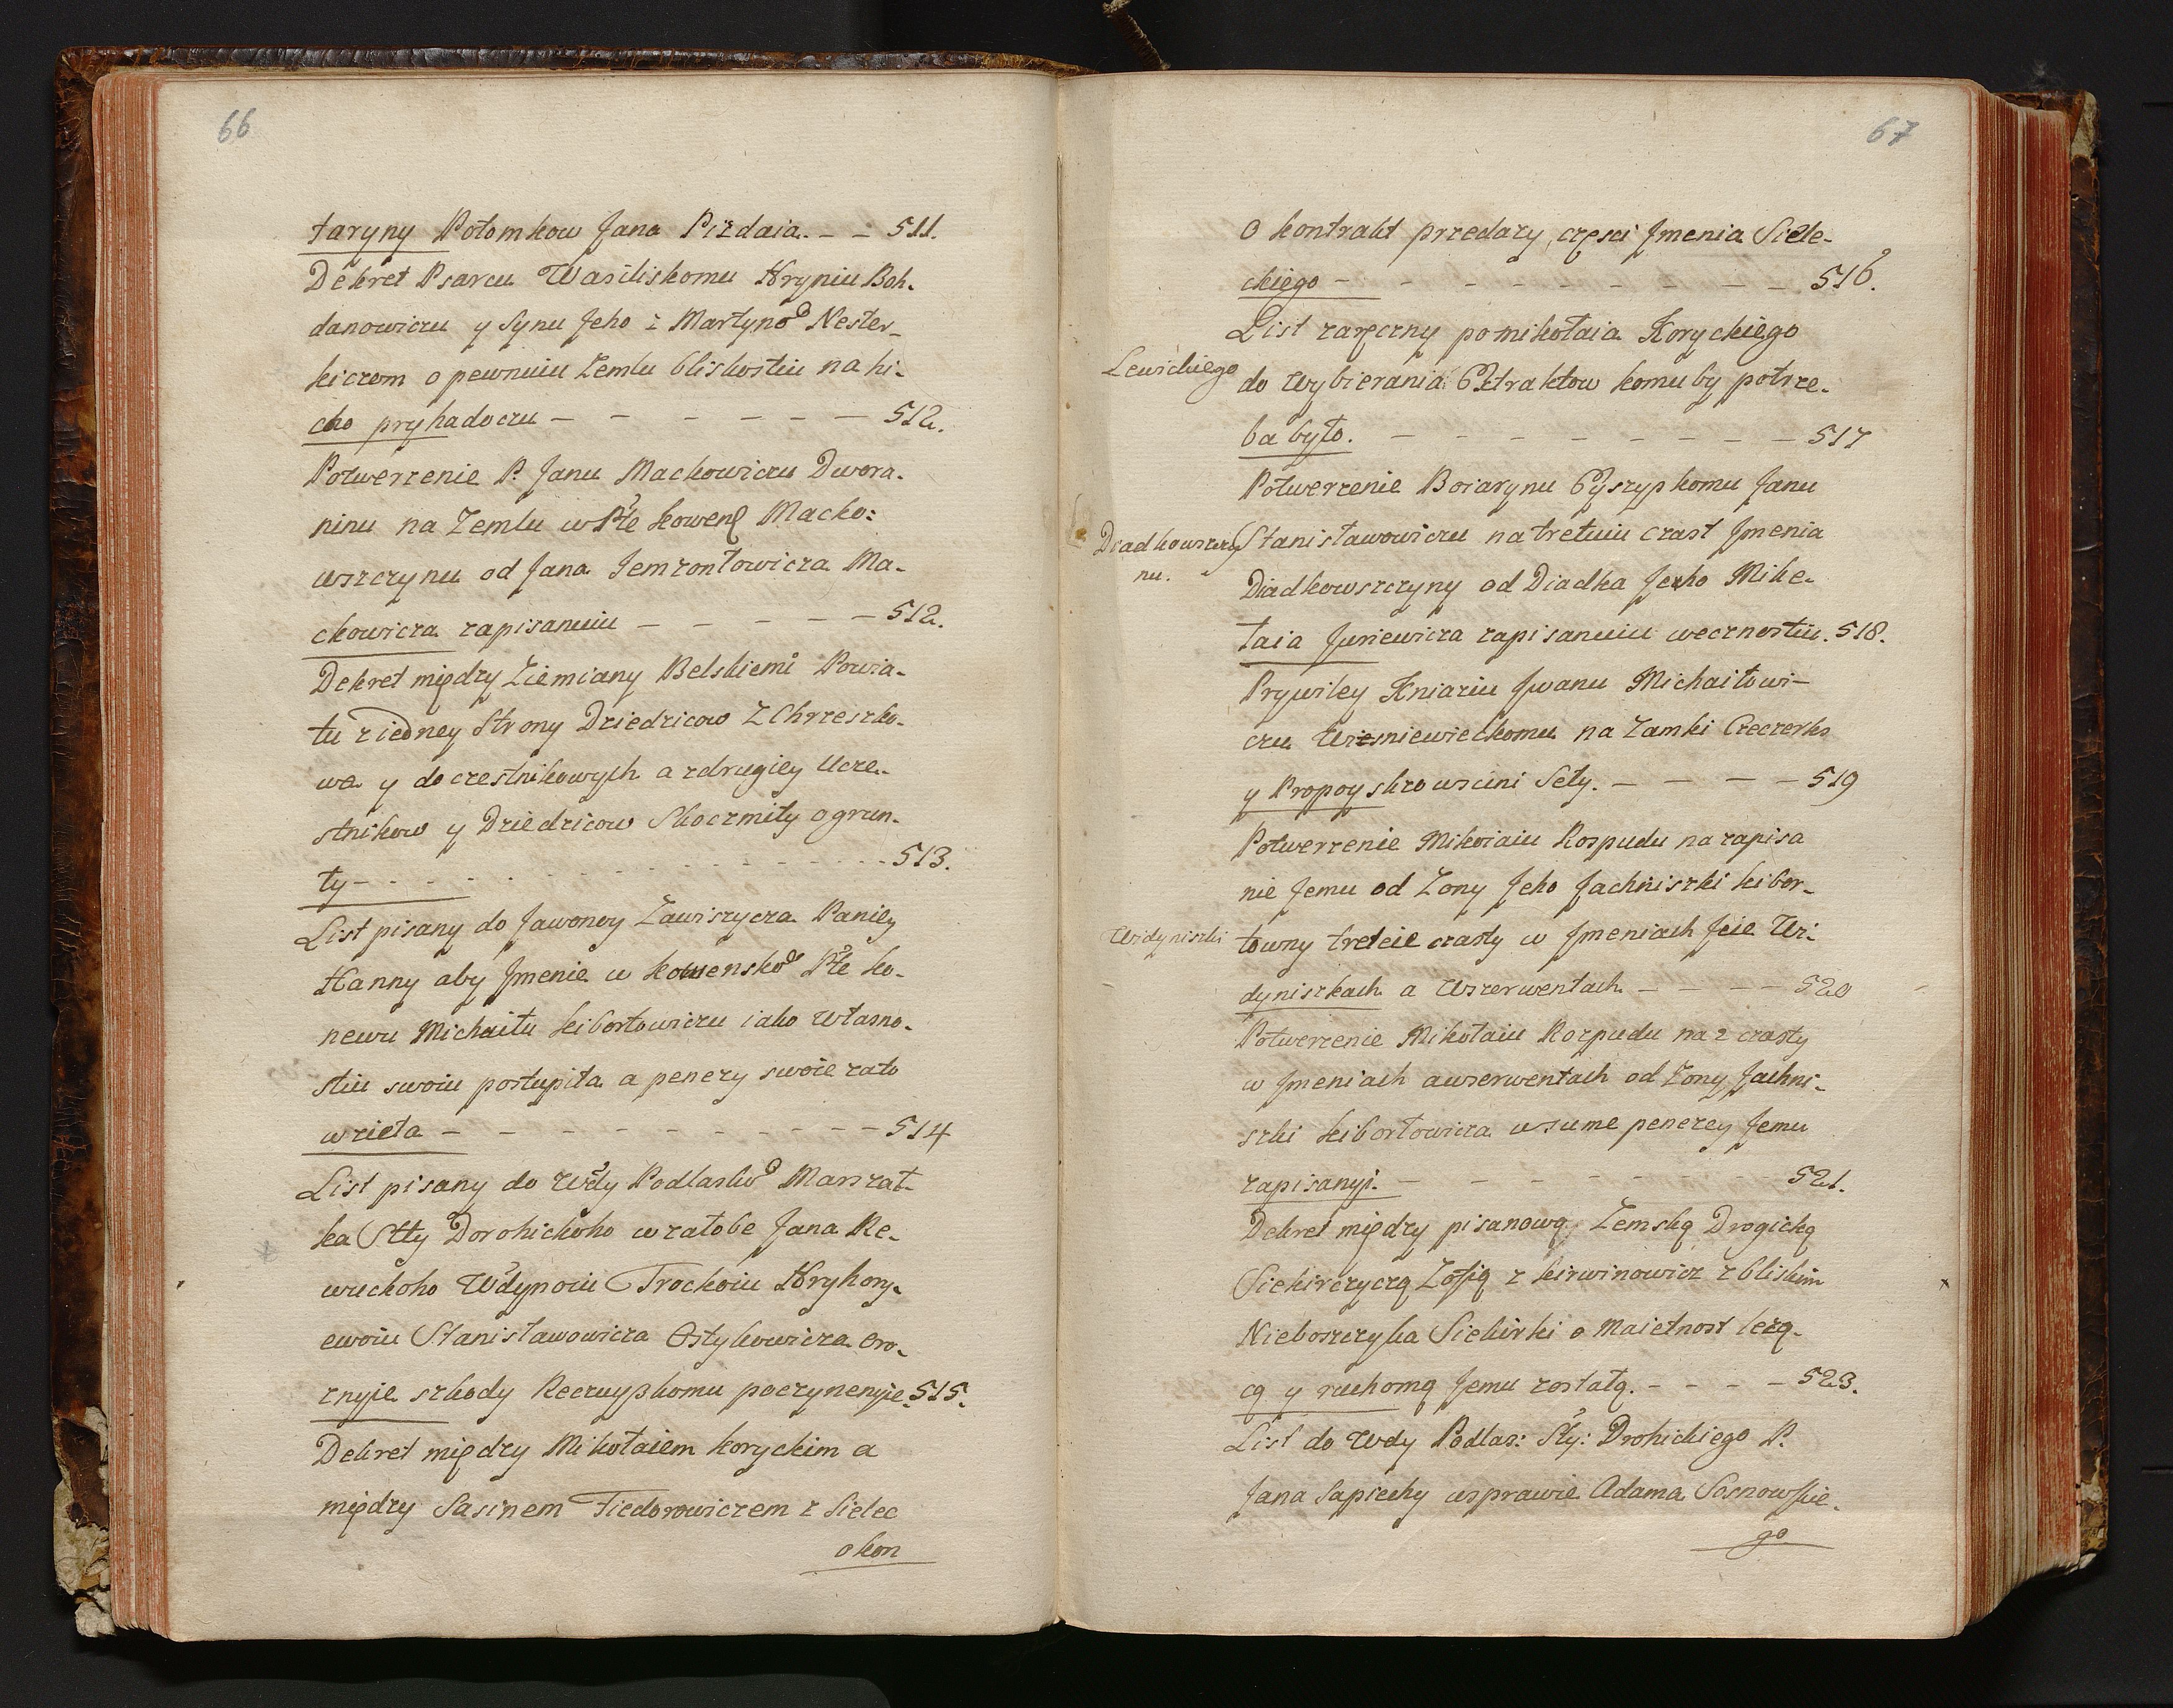 66
taryny Potomkow Jana Pizdaia. – – 511.
Dekret Psarcu Wasiliskomu Hryniu Boh-
danowiczu y Synu Jeho z Martyno Nester-
kiczom o pewnuiu Zemlu bliskostiu na hi-
cho pryhadoczu – – – – – – 512.
Potwerzenie P. Janu Mackowiczu Dwora-
ninu na Zemlu w Pte Kowen Macko:
wszczynu od Jana Jemzontowicza Ma-
ckowicza zapisanuiu – – – – – 512.
Dekret między Ziemiany Belskiemi Powia-
tu z iedney Strony Dziedzicow Z Chrzeszko-
wa y do czestnikowych a zdrugiey Ucze-
stnikow y Dziedzicow Skoczmity o grun-
ty – - - - - - - - - - 513.
List pisany do Jawonoy Zawiszycza Paniey
Hanny aby Jmenie w Kowensko Pte Ko-
newu Michaiłu Kibortowiczu iako własno-
stiu swoiu postupiła a penezy swoie zato
wzieła – – – – – – – – – 514
List pisany do Wdy Podlasko Marszał-
ka Stty Dorohickoho w załobe Jana Re-
wuckoho Wdynoiu Trockoiu Hryhory-
ewoiu Stanisławowicza Ostykowicza oro-
znyie szkody Reczuyskomu poczynenyie. 515.
Dekret między Mikołaiem Koryckim a
między Sasinem Fiedorowiczem z Sielec
o kon
67
o kontrakt przedazy częsci Jmenia Siele-
ckiego – – – – – – – – 516.
List zaręczny po mikołaia Koryckiego
Lewickiego
do Wybierania Extraktow komu by potrze-
ba było. – – – – – – – 517
Potwerzenie Boiarynu Janu
Dradkowszczy
nu.
Stanisławowiczu na tretuiu czast Jmenia
Diadkowszczyny od Diadka Jeho Miko-
łaia Juriewicza zapisanuiu wecznostiu. 518.
Prywiley Kniaziu Jwanu Michaiłowi-
czu Wiesniewieckomu na Zamki Czeczersk
y Propoysk zo wsimi Seły. – – – – 519
Potwerzenie Mikoiaiu Rospudu na zapisa
nie Jemu od Zony Jeho Jachniszki Kibor-
Widyniszki
towny treteie czasty w Jmeniach Jeie Wi-
dyniszkach a Wszerwentach – – – – 520
Potwerzenie Mikołaiu Rozpudu na 2 czasty
w Jmeniach awszerwentach od Zony Jachni-
szki Kibortowicza w sume penezey Jemu
zapisanyi. – – – – – – – 521.
Dekret między pisanową Zemską Drogicką
Siekirczyczą Zofią z Kirwinowicz z bliskim
Nieboszczyka Siekirki o Maietnost leżą-
cą y ruchomą Jemu zostałą. – – – – 523.
List do Wdy Podlas: Sty: Drohickiego P.
Jana Sapiechy wsprawie Adama Sosnowskie-
go